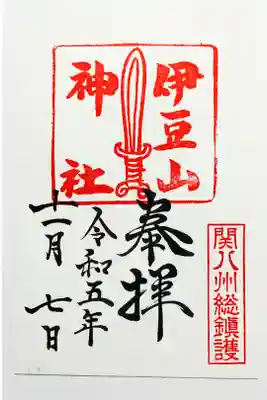 関八州総鎮護
伊豆山
神社
奉拝
令和五年
十一月七日